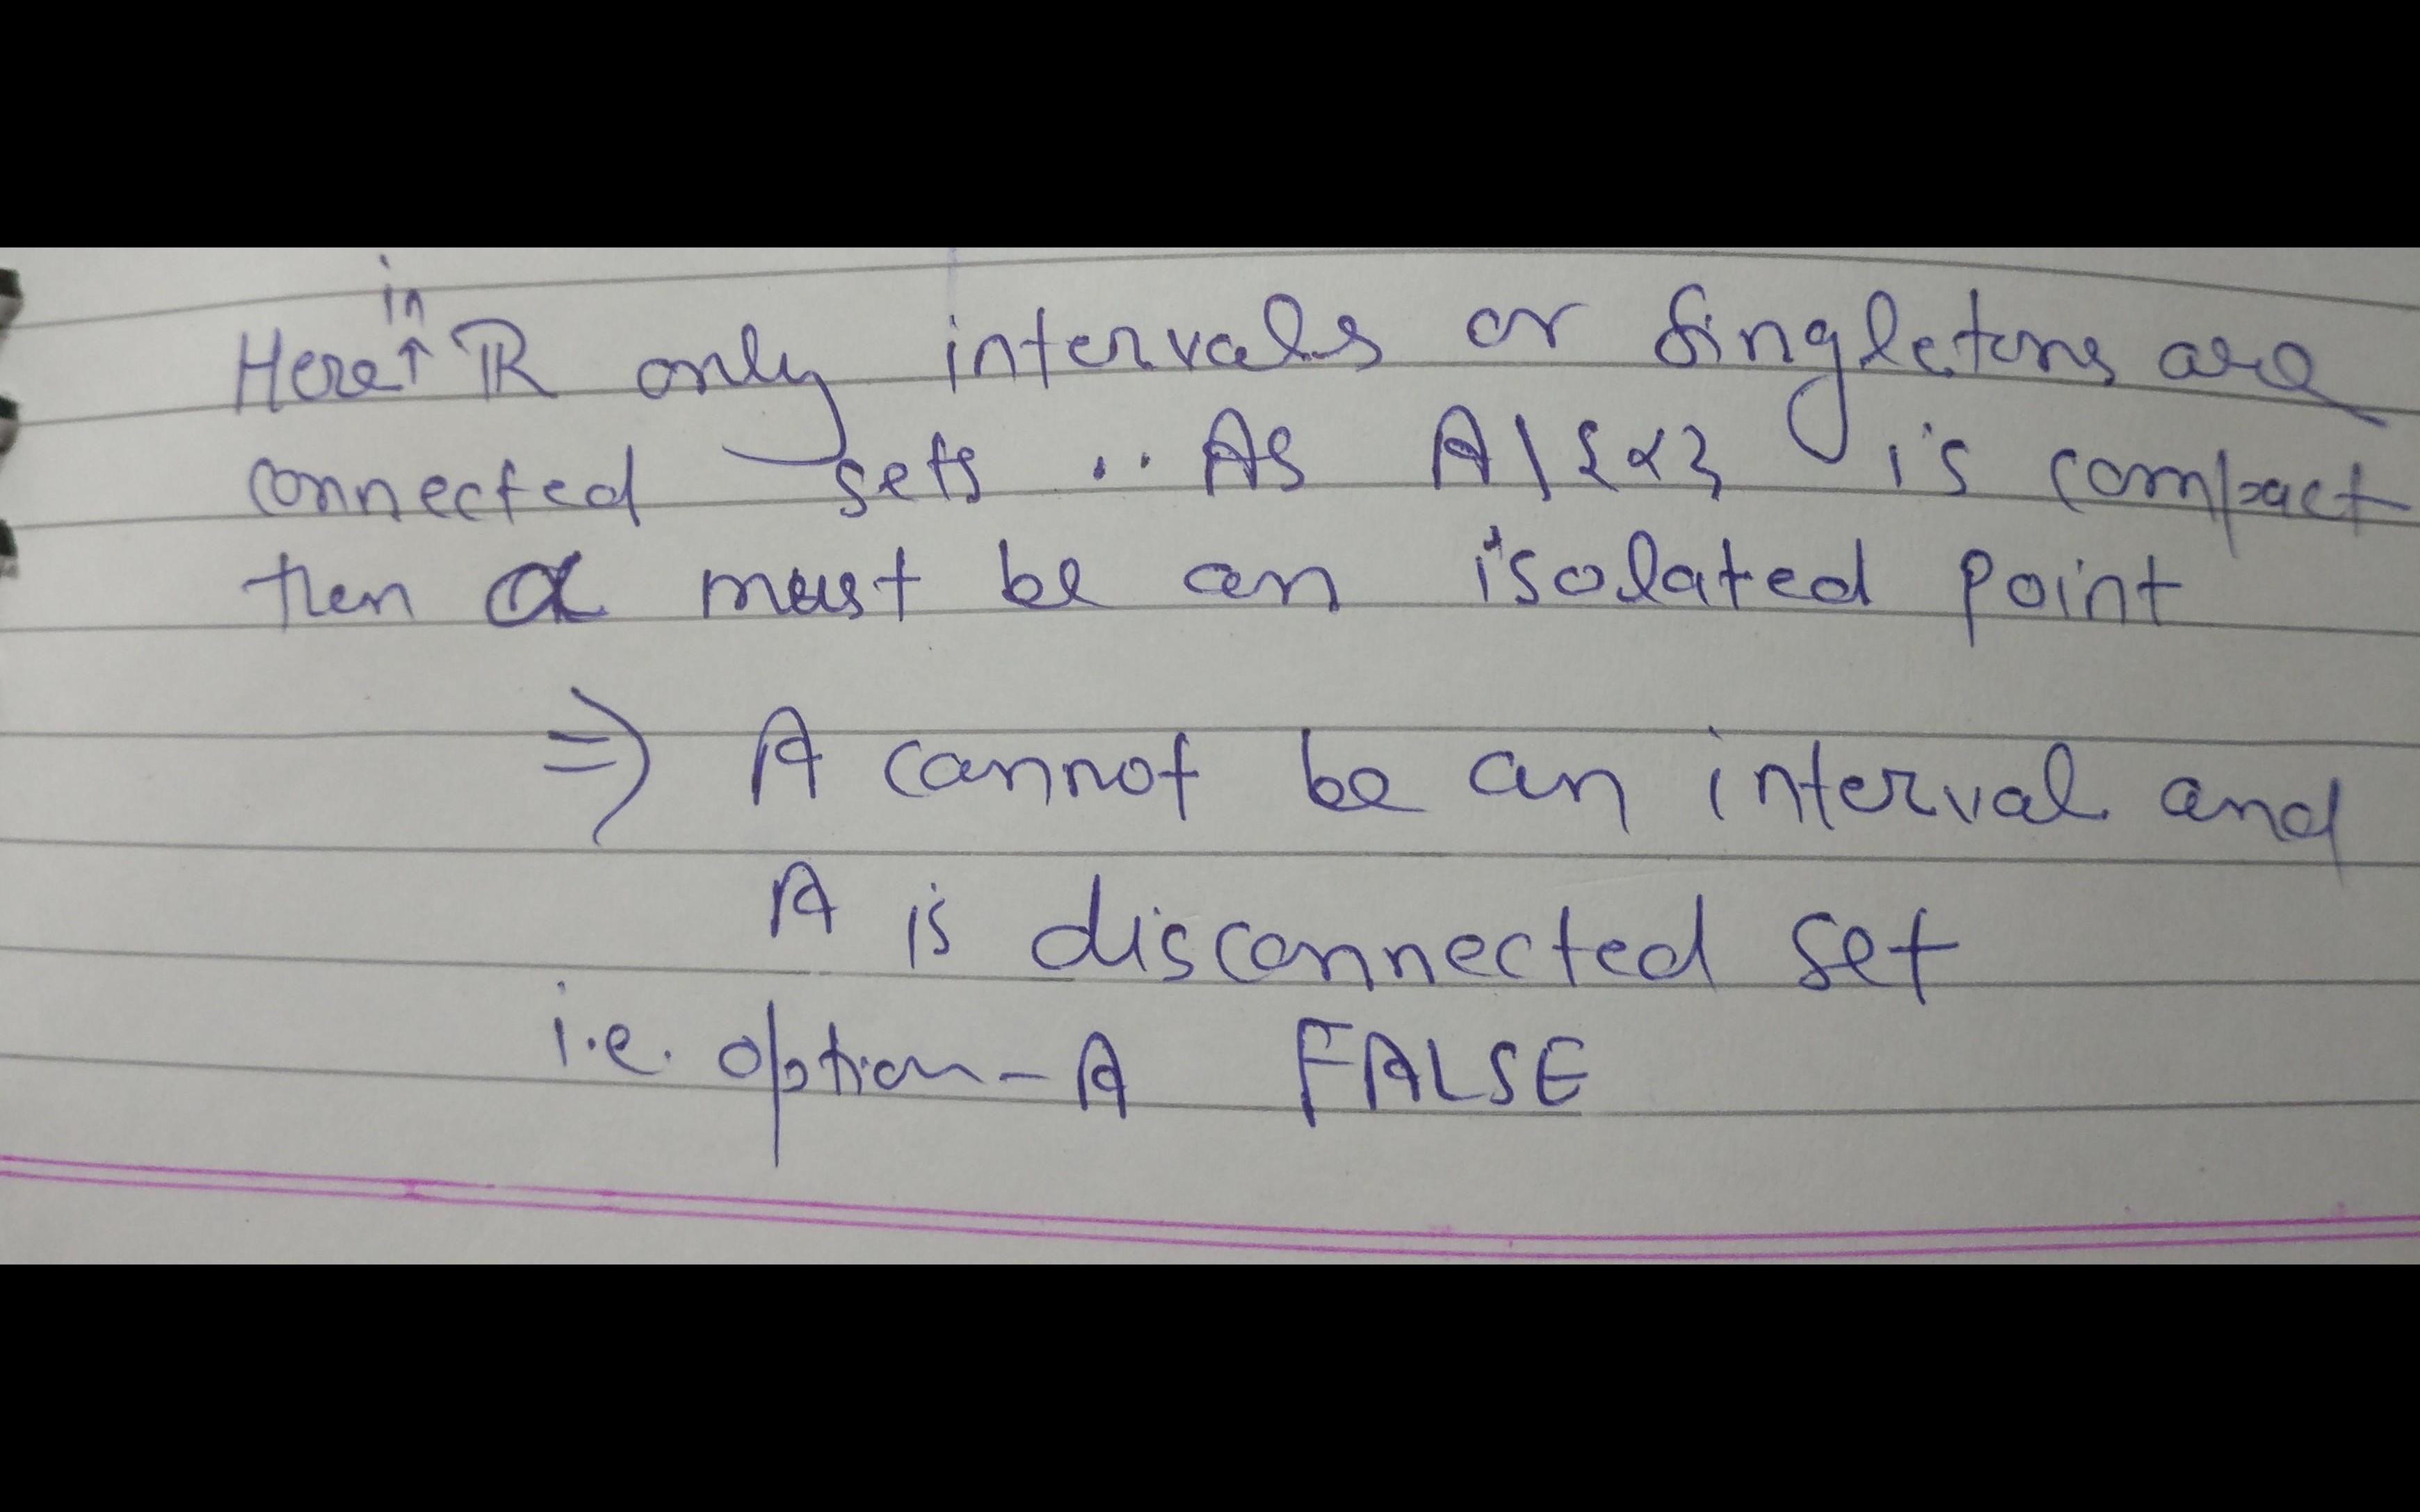 in
Here↑ ℝ only intervals or singletons are
connected sets .. As A\{α} is compact
then α must be an isolated point
⇒ A cannot be an interval and
A is disconnected set
i.e. option-A FALSE